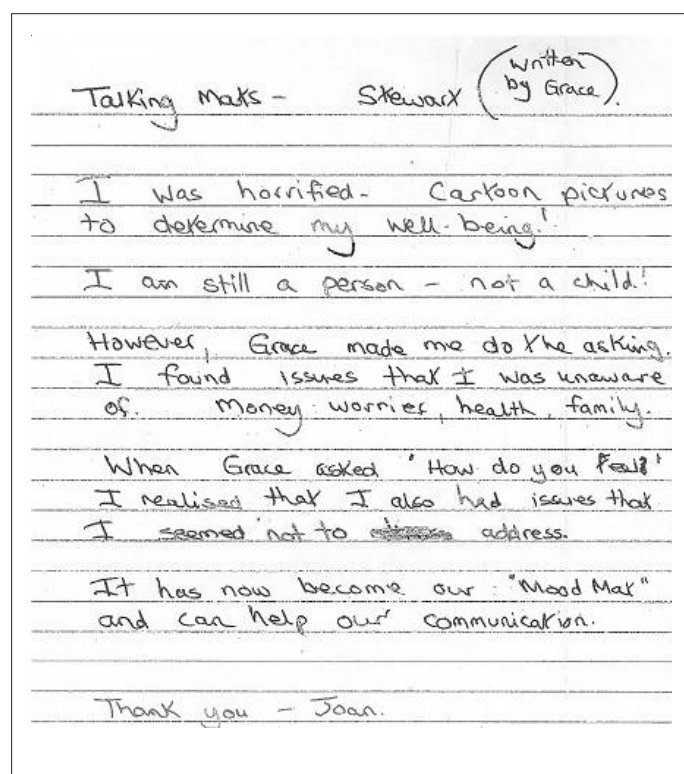 Talking Mats - Stewart (written by Grace).
I was horrified - Cartoon pictures
to determine my well-being!
I am still a person - not a child!
However, Grace made me do the asking.
I found issues that I was unaware
of. Money worries, health, family.
When Grace asked "How do you feel?"
I realised that I also had issues that
I seemed not to address.
It has now become our "Mood Mat"
and can help our communication.
Thank you - Joan.